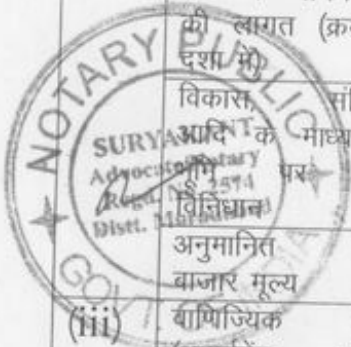 की लागत (क्र
दशा में)
विकास, सं
आदि के माध्य
भूमि पर
विनिधान
अनुमानित
बाजार मूल्य
(iii) वाणिज्यिक
NOTARY PUBLIC
SURYA
Advocate Notary
Regd. No. 2574
Distt.
GOVT